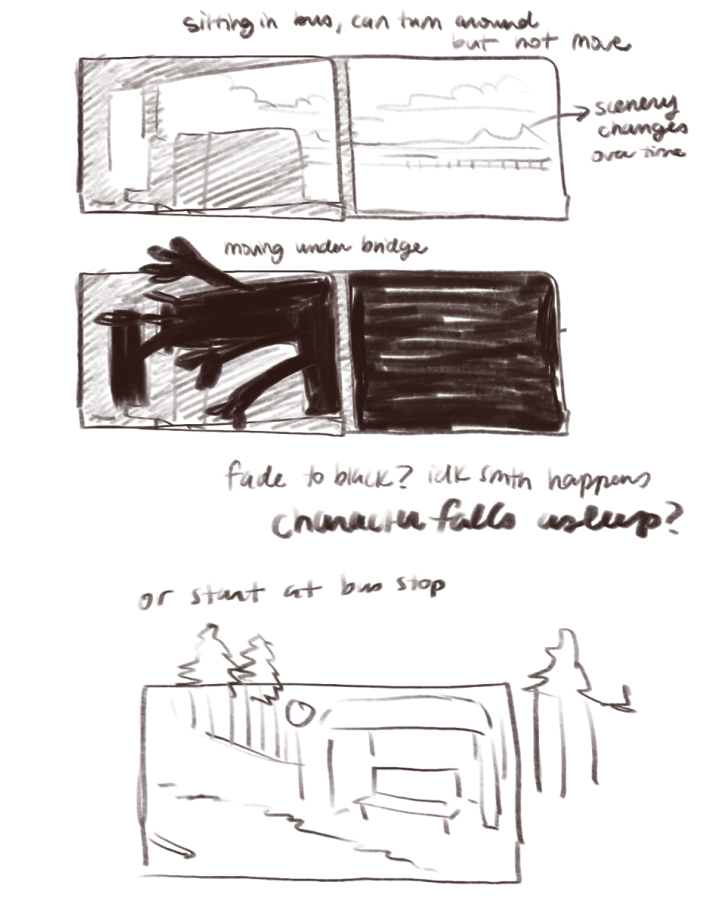 sitting in bus, can turn around
but not move
scenery
changes
over time
moving under bridge
fade to black? idk smth happens
character falls asleep?
or start at bus stop